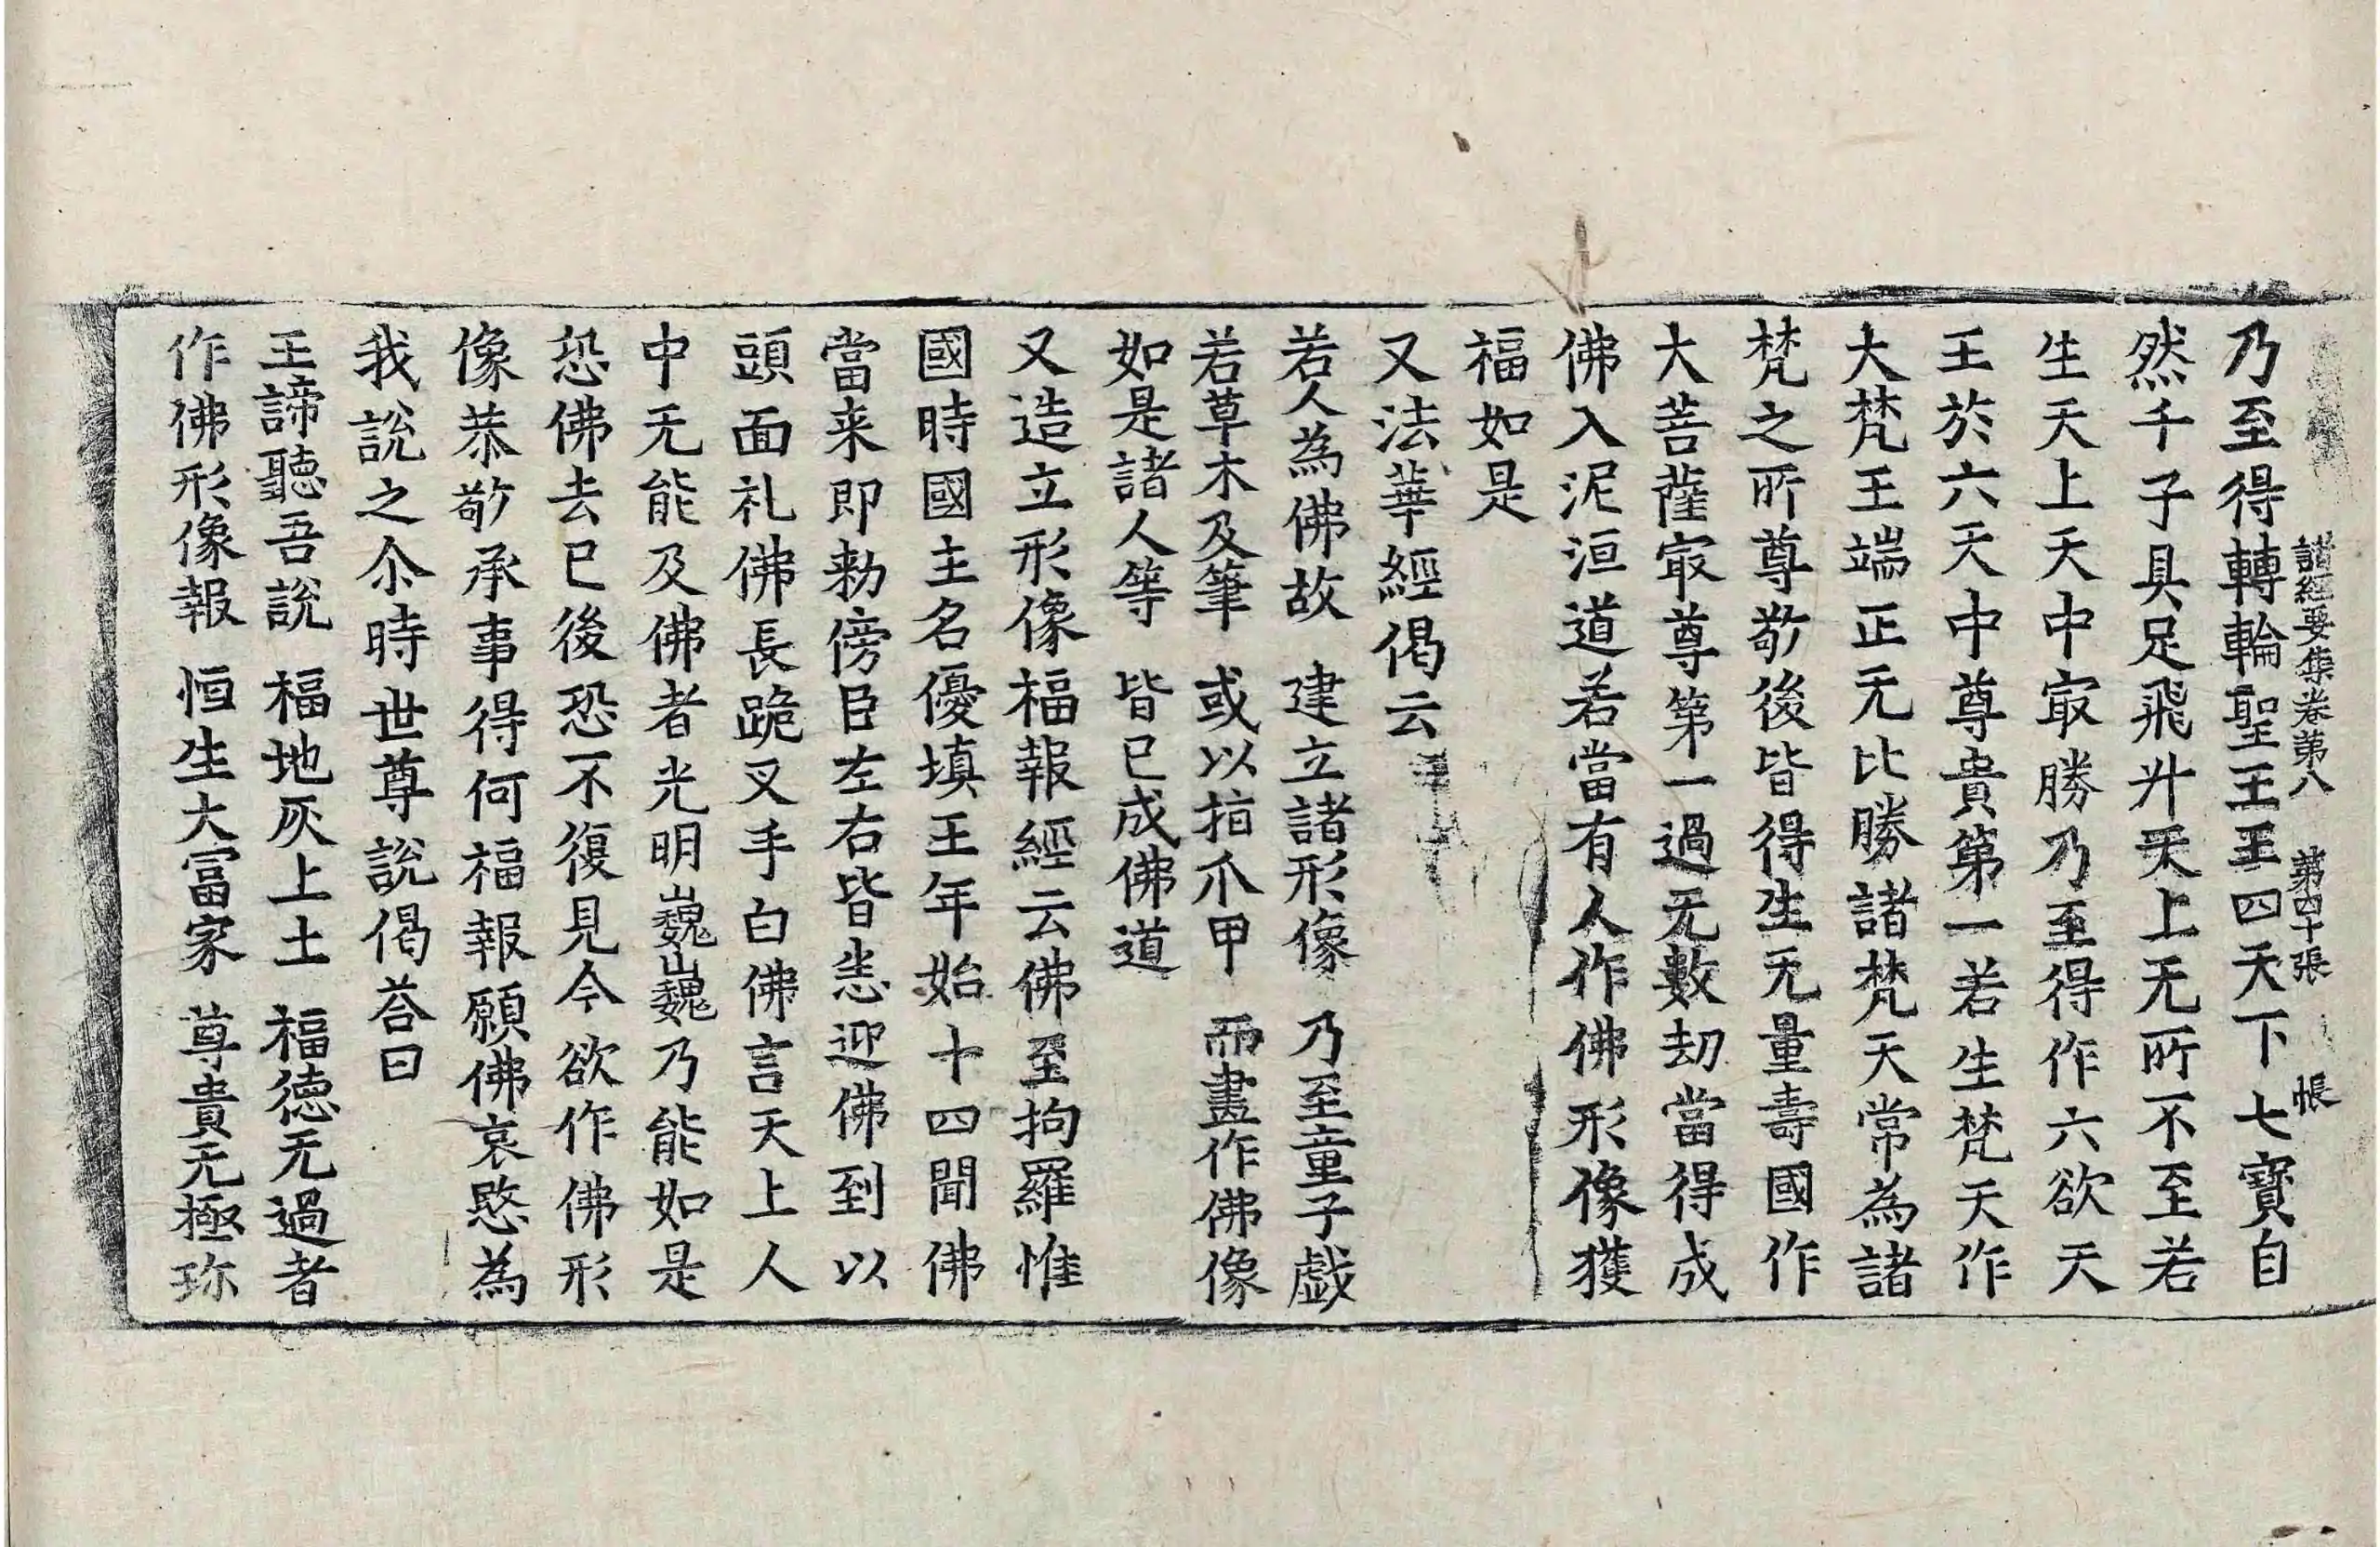 諸經要集卷第八　第四十張　帳
乃至得轉輪聖王王四天下七寶自
然千子具足飛升天上无所不至若
生天上天中㝡勝乃至得作六欲天
王於六天中尊貴第一若生梵天作
大梵王端正无比勝諸梵天常為諸
梵之所尊敬後皆得生无量壽國作
大菩薩㝡尊第一過无數劫當得成
佛入泥洹道若當有人作佛形像獲
福如是
又法華經偈云
若人為佛故　建立諸形像　乃至童子戲
若草木及筆　或以指爪甲　而畫作佛像
如是諸人等　皆已成佛道
又造立形像福報經云佛至拘羅惟
國時國主名優填王年始十四聞佛
當来即勑傍臣左右皆悉迎佛到以
頭面礼佛長跪叉手白佛言天上人
中无能及佛者光明巍巍乃能如是
恐佛去已後恐不復見今欲作佛形
像恭敬承事得何福報願佛哀愍為
我說之尒時世尊說偈荅曰
王諦聽吾說　福地灰上土　福德无過者
作佛形像報　恒生大冨家　尊貴无極珎